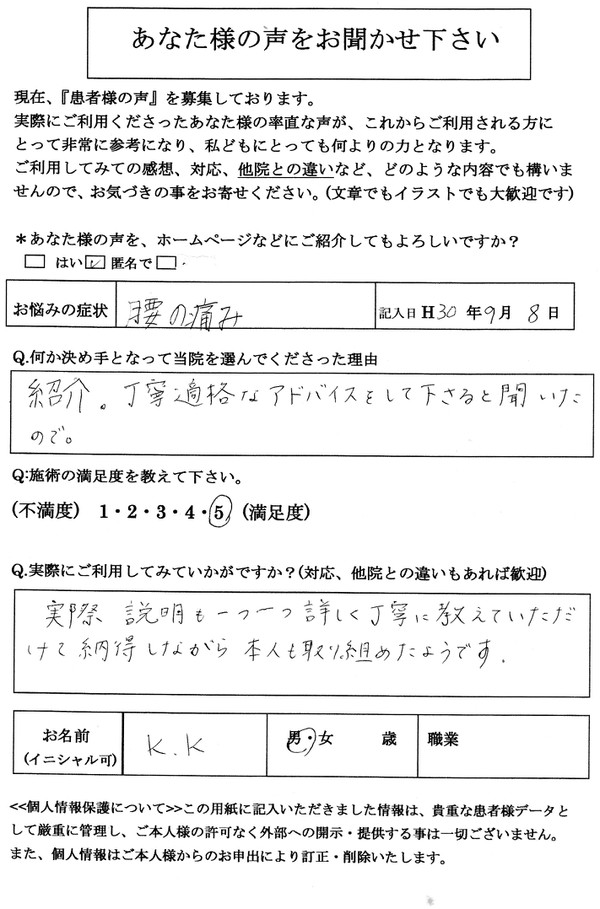 あなた様の声をお聞かせ下さい
現在、『患者様の声』を募集しております。
実際にご利用くださったあなた様の率直な声が、これからご利用される方に
とって非常に参考になり、私どもにとっても何よりの力となります。
ご利用してみての感想、対応、他院との違いなど、どのような内容でも構いま
せんので、お気づきの事をお寄せください。(文章でもイラストでも大歓迎です)
＊あなた様の声を、ホームページなどにご紹介してもよろしいですか？
□ はい ☑ 匿名で □
お悩みの症状 腰の痛み 記入日 H30 年 9 月 8 日
Q.何か決め手となって当院を選んでくださった理由
紹介。丁寧適格なアドバイスをして下さると聞いた
ので。
Q:施術の満足度を教えて下さい。
(不満度) 1・2・3・4・5 (満足度)
Q.実際にご利用してみていかがですか？(対応、他院との違いもあれば歓迎)
実際 説明も一つ一つ詳しく丁寧に教えていただ
けて納得しながら本人も取り組めたようです.
お名前 K.K 男・女 歳 職業
(イニシャル可)
<<個人情報保護について>>この用紙に記入いただきました情報は、貴重な患者様データと
して厳重に管理し、ご本人様の許可なく外部への開示・提供する事は一切ございません。
また、個人情報はご本人様からのお申出により訂正・削除いたします。